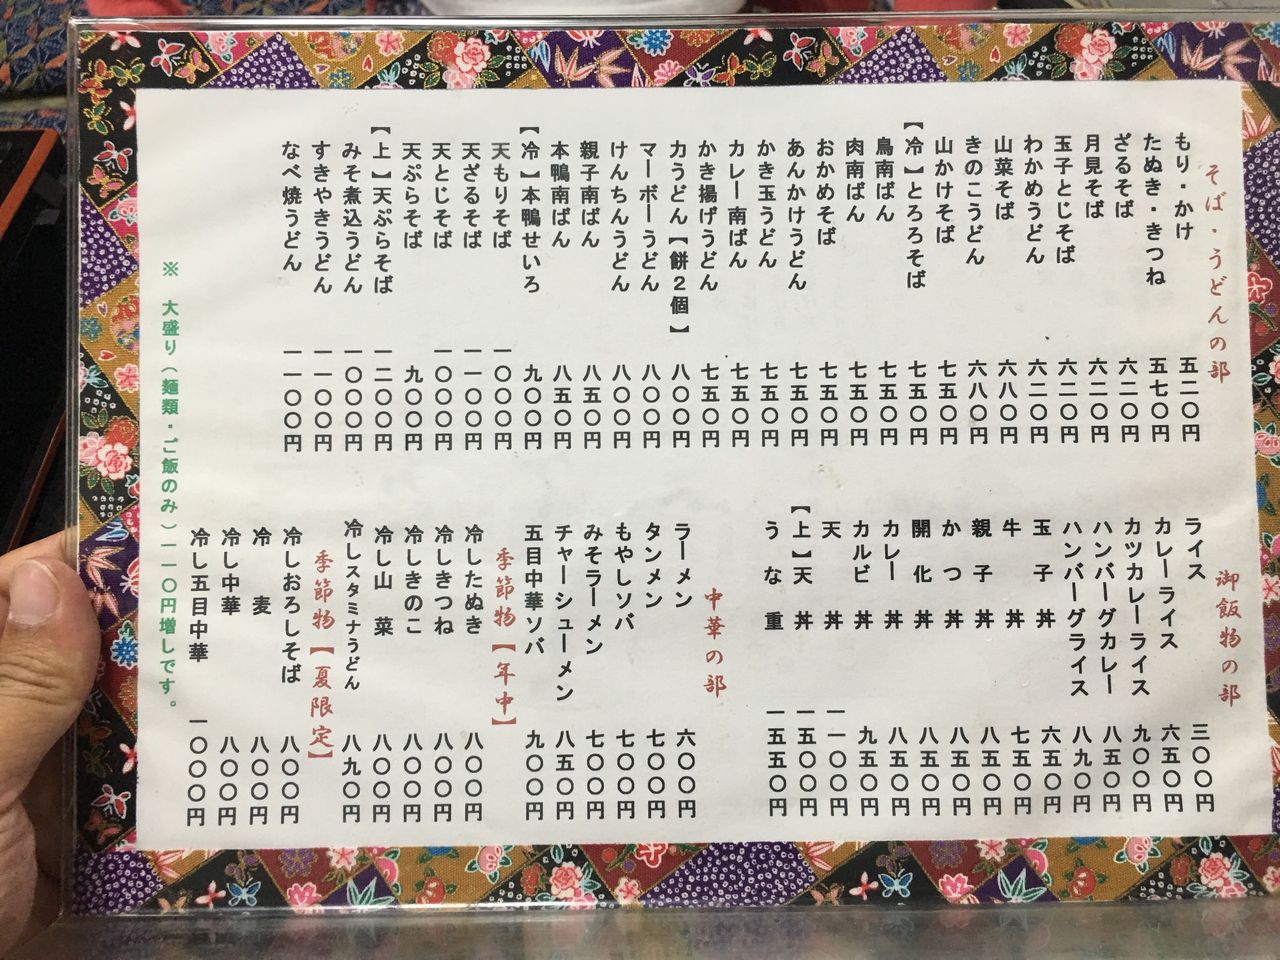 そば・うどんの部
もり・かけ 五二〇円
たぬき・きつね 五七〇円
ざるそば 六二〇円
月見そば 六二〇円
玉子とじそば 六二〇円
わかめうどん 六二〇円
山菜そば 六八〇円
きのこうどん 六八〇円
山かけそば 七五〇円
【冷】とろろそば 七五〇円
鳥南ばん 七五〇円
肉南ばん 七五〇円
おかめそば 七五〇円
あんかけうどん 七五〇円
かき玉うどん 七五〇円
カレー南ばん 七五〇円
かき揚げうどん 七五〇円
力うどん【餅２個】 八〇〇円
マーボーうどん 八〇〇円
けんちんうどん 八〇〇円
親子南ばん 八五〇円
本鴨南ばん 八五〇円
【冷】本鴨せいろ 九〇〇円
天もりそば 一〇〇〇円
天ざるそば 一一〇〇円
天とじそば 一〇〇〇円
天ぷらそば 九〇〇円
【上】天ぷらそば 一二〇〇円
みそ煮込うどん 一〇〇〇円
すきやきうどん 一一〇〇円
なべ焼うどん 一一〇〇円
御飯物の部
ライス 三〇〇円
カレーライス 六五〇円
カツカレーライス 九〇〇円
ハンバーグカレー 八五〇円
ハンバーグライス 八九〇円
玉子丼 六五〇円
牛丼 七五〇円
親子丼 八五〇円
かつ丼 八五〇円
開化丼 八五〇円
カレー丼 八五〇円
カルビ丼 九五〇円
天丼 一一〇〇円
【上】天丼 一五〇〇円
うな重 一五五〇円
中華の部
ラーメン 六〇〇円
タンメン 七〇〇円
もやしソバ 七〇〇円
みそラーメン 七〇〇円
チャーシューメン 八五〇円
五目中華ソバ 九〇〇円
季節物【年中】
冷したぬき 八〇〇円
冷しきつね 八〇〇円
冷しきのこ 八〇〇円
冷し山菜 八〇〇円
冷しスタミナうどん 八九〇円
季節物【夏限定】
冷しおろしそば 八〇〇円
冷麦 八〇〇円
冷し中華 八〇〇円
冷し五目中華 一〇〇〇円
※ 大盛り（麺類・ご飯のみ）一一〇円増しです。